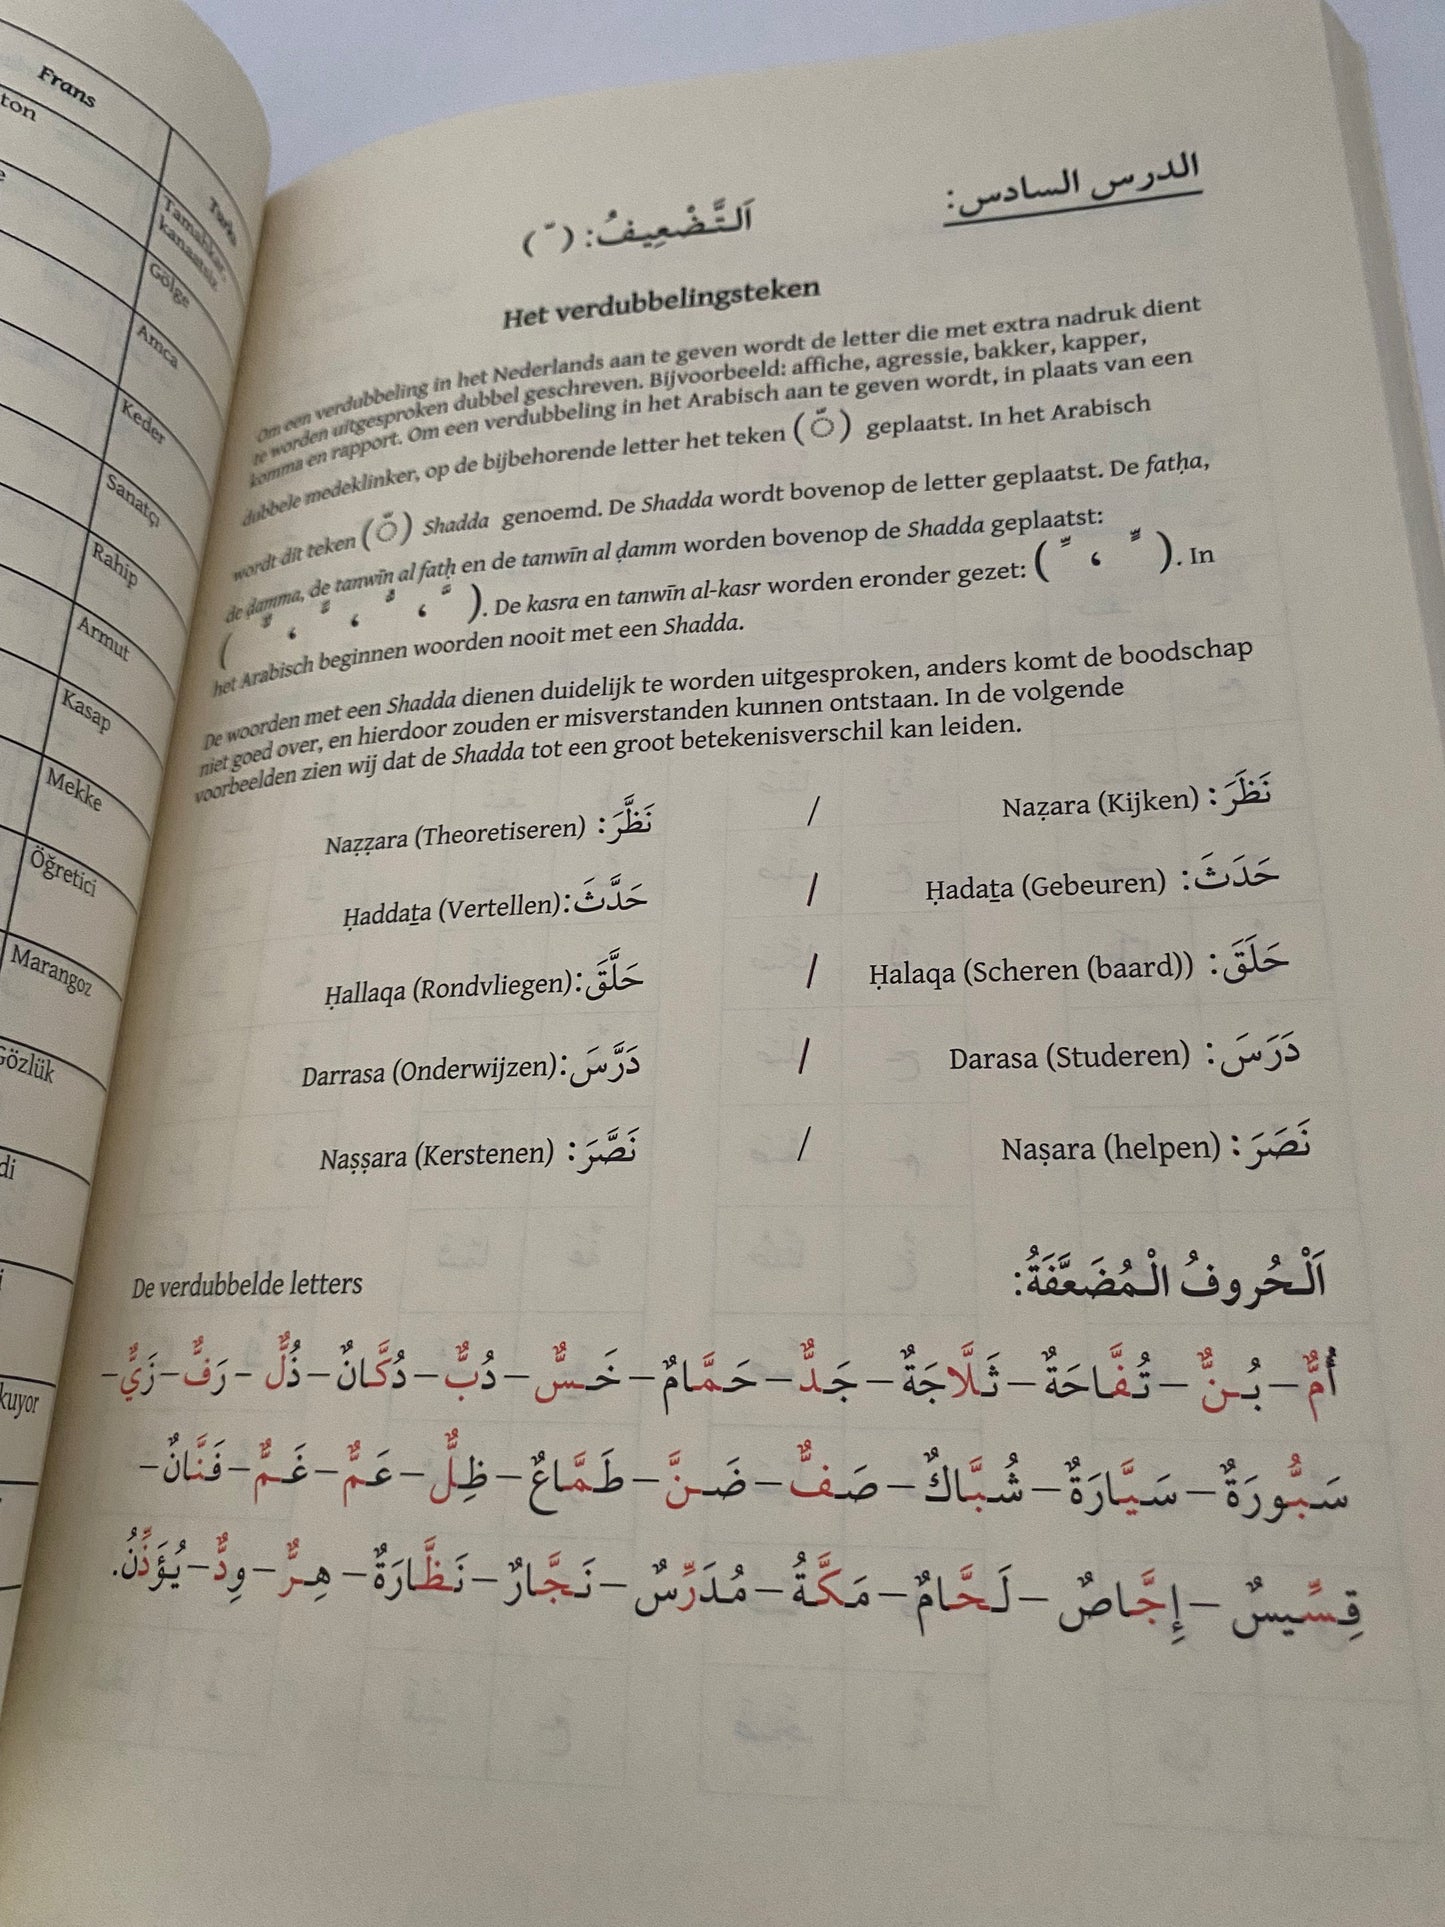 Frans
Turks
ton
Tamahkar,
kanaatsiz
Gölge
Amca
Keder
Sanatçı
Rahip
Armut
Kasap
Mekke
Öğretici
Marangoz
Gözlük
di
kuyor
الدرس السادس:
اَلتَّضْعِيفُ: ( ّ )
Het verdubbelingsteken
Om een verdubbeling in het Nederlands aan te geven wordt de letter die met extra nadruk dient
te worden uitgesproken dubbel geschreven. Bijvoorbeeld: affiche, agressie, bakker, kapper,
komma en rapport. Om een verdubbeling in het Arabisch aan te geven wordt, in plaats van een
dubbele medeklinker, op de bijbehorende letter het teken (ّ) geplaatst. In het Arabisch
wordt dit teken (ّ) Shadda genoemd. De Shadda wordt bovenop de letter geplaatst. De fatḥa,
de ḍamma, de tanwīn al fatḥ en de tanwīn al ḍamm worden bovenop de Shadda geplaatst:
( ، ، ، ). De kasra en tanwīn al-kasr worden eronder gezet: ( ، ). In
het Arabisch beginnen woorden nooit met een Shadda.
De woorden met een Shadda dienen duidelijk te worden uitgesproken, anders komt de boodschap
niet goed over, en hierdoor zouden er misverstanden kunnen ontstaan. In de volgende
voorbeelden zien wij dat de Shadda tot een groot betekenisverschil kan leiden.
Naẓẓara (Theoretiseren) نَظَّرَ: / Naẓara (Kijken) نَظَرَ:
Ḥaddaṯa (Vertellen) حَدَّثَ: / Ḥadaṯa (Gebeuren) حَدَثَ:
Ḥallaqa (Rondvliegen) حَلَّقَ: / Ḥalaqa (Scheren (baard)) حَلَقَ:
Darrasa (Onderwijzen) دَرَّسَ: / Darasa (Studeren) دَرَسَ:
Naṣṣara (Kerstenen) نَصَّرَ: / Naṣara (helpen) نَصَرَ:
De verdubbelde letters اَلْحُرُوفُ الْمُضَعَّفَةُ:
أُمٌّ – بُنٌّ – تُفَّاحَةٌ – ثَلَّاجَةٌ – جَدٌّ – حَمَّامٌ – خَسٌّ – دُبٌّ – دُكَّانٌ – ذُلٌّ – رَفٌّ – زَيٌّ –
سَبُّورَةٌ – سَيَّارَةٌ – شُبَّاكٌ – صَفٌّ – ضَنَّ – طَمَّاعٌ – ظِلٌّ – عَمٌّ – غَمٌّ – فَنَّانٌ –
قِسِّيسٌ – إِجَّاصٌ – لَحَّامٌ – مَكَّةُ – مُدَرِّسٌ – نَجَّارٌ – نَظَّارَةٌ – هِرٌّ – وِدٌّ – يُؤَذِّنُ.